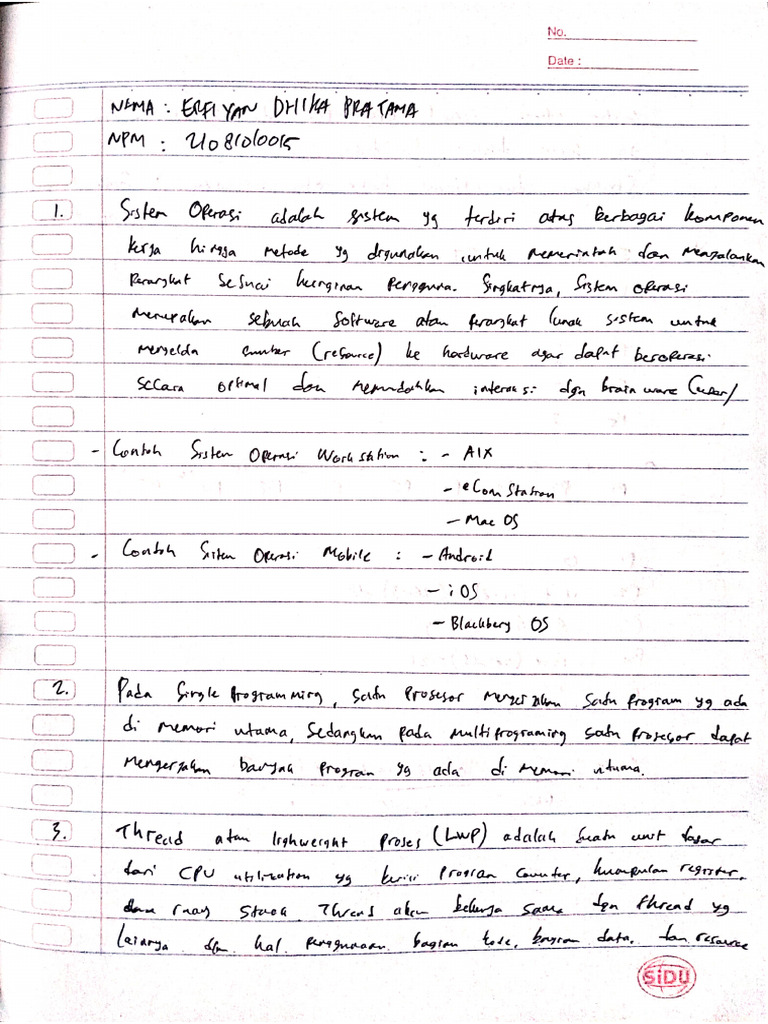 No.
Date :
NAMA : ERFIYAN DHIKA PRATAMA
NPM : 21081010015
1. Sistem Operasi adalah sistem yg terdiri atas berbagai komponen
kerja hingga metode yg digunakan untuk memerintah dan menjalankan
Perangkat sesuai keinginan Pengguna. Singkatnya, Sistem operasi
merupakan sebuah Software atau Perangkat lunak sistem untuk
mengelola sumber (resource) ke hardware agar dapat beroperasi
secara optimal dan memudahkan interaksi dgn brainware (user)
- Contoh Sistem Operasi Workstation : - AIX
- eComStation
- Mac OS
- Contoh Sistem Operasi Mobile : - Android
- iOS
- Blackberry OS
2. Pada Single Programming, satu Prosesor mengerjakan satu Program yg ada
di memori utama, Sedangkan Pada multiprograming satu Prosesor dapat
mengerjakan banyak Program yg ada di memori utama.
3. Thread atau lighweight Proses (LWP) adalah suatu unit dasar
dari CPU utilization yg berisi Program Counter, kumpulan register,
dan ruang Stack. Thread akan bekerja sama dgn thread yg
lainya dlm hal Penggunaan bagian kode, bagian data, dan resource
SiDU